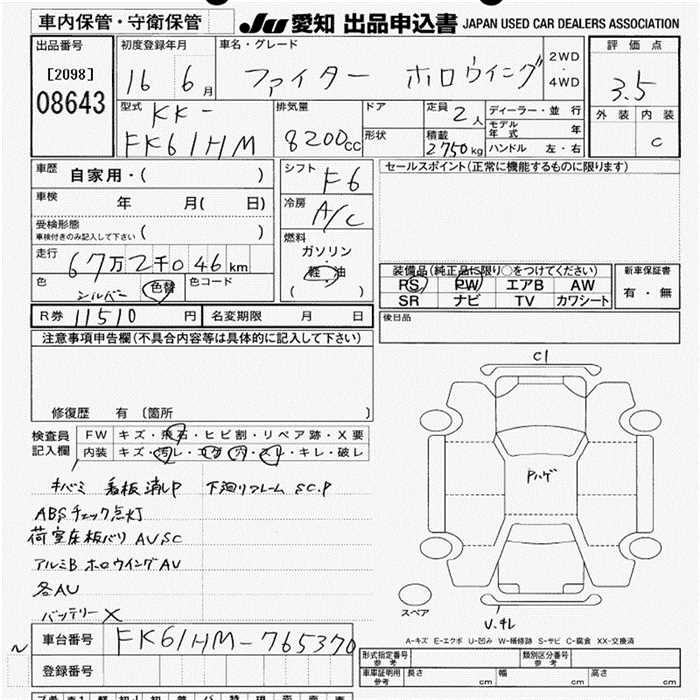 車内保管・守衛保管 JU 愛知 出品申込書 JAPAN USED CAR DEALERS ASSOCIATION
出品番号 初度登録年月 車名・グレード 評価点
[2098] 16 6月 ファイター ホロウイング 2WD・4WD 3.5
08643 型式 排気量 ドア 定員 2人 ディーラー・並行 外装 内装
KK- 形状 モデル年式 年 C
FK61HM 8200cc 積載 2750kg ハンドル 左・右
車歴 自家用・( ) シフト F6 セールスポイント(正常に機能するものに限ります)
車検 年 月( 日) 冷房 A/C
受検形態 車検付きのみ記入して下さい ( ) 燃料
走行 67万2千046km ガソリン・軽油 ( )
装備品(純正品に限り○をつけてください) 新車保証書
色 シルバー 色替 色コード PS PW エアB AW 有・無
SR ナビ TV カワシート
R券 11510円 名変期限 月 日 後日品
注意事項申告欄(不具合内容等は具体的に記入して下さい)
修復歴 有 〔箇所 〕
検査員記入欄 FW キズ・飛石・ヒビ割・リペア跡・X要
内装 キズ・汚レ・コゲ・穴・スレ・キレ・破レ
キバミ 看板消しP 下廻りフレーム SC.P
ABSチェック点灯
荷室床板バリ AU SC
アルミB ホロウイングAU
各AU
バッテリーX
C1
Pハゲ
スペア
U.キレ
A-キズ E-エクボ U-凹み W-補修跡 S-サビ C-腐食 XX-交換済
車台番号 FK61HM-765370
登録番号
型式指定番号 参考 類別区分番号 参考
車庫証明用 参考 長さ cm 幅 cm 高さ cm